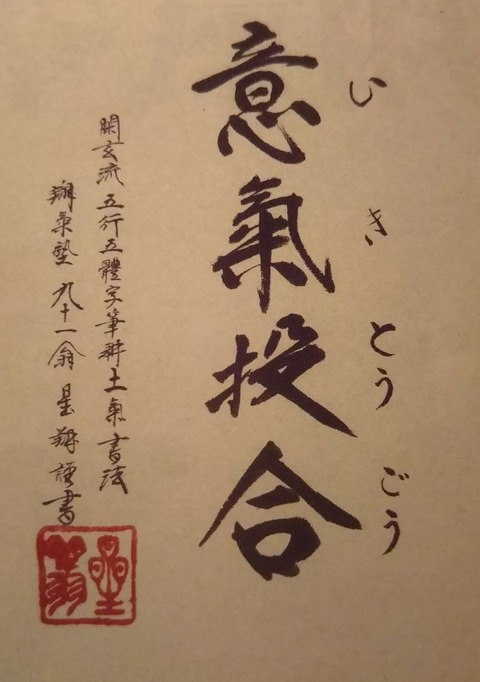 意氣投合
いきとうごう
開玄流五行五體字筆耕土氣書法
翔氣塾九十一翁星翔謹書
星翁